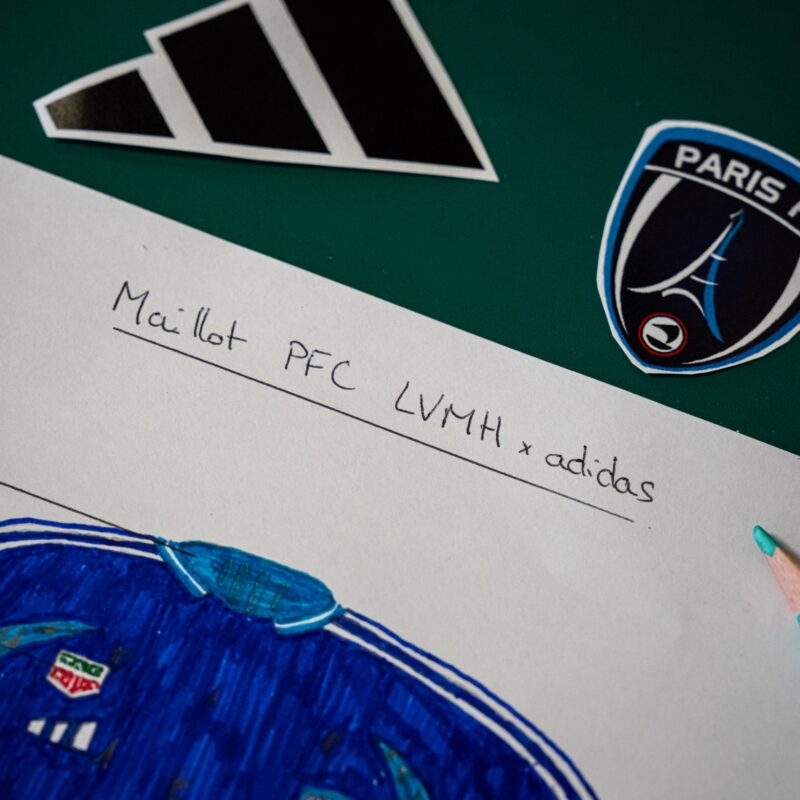 PARIS
Maillot PFC LVMH x adidas